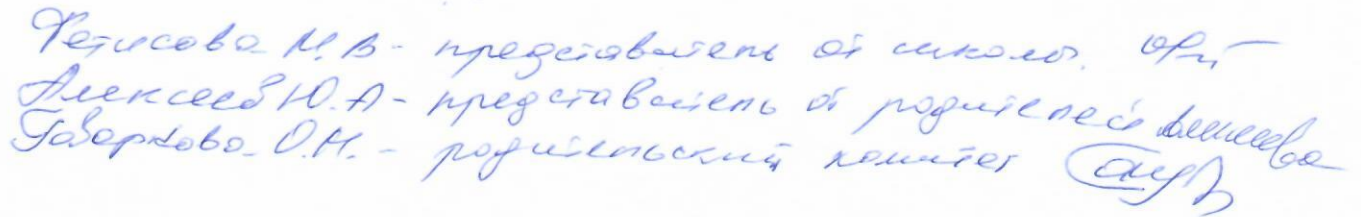 Фетисова М.В - представитель от школы.
Алексеев Ю.А - представитель от родителей
Говоркова О.Н. - родительский комитет